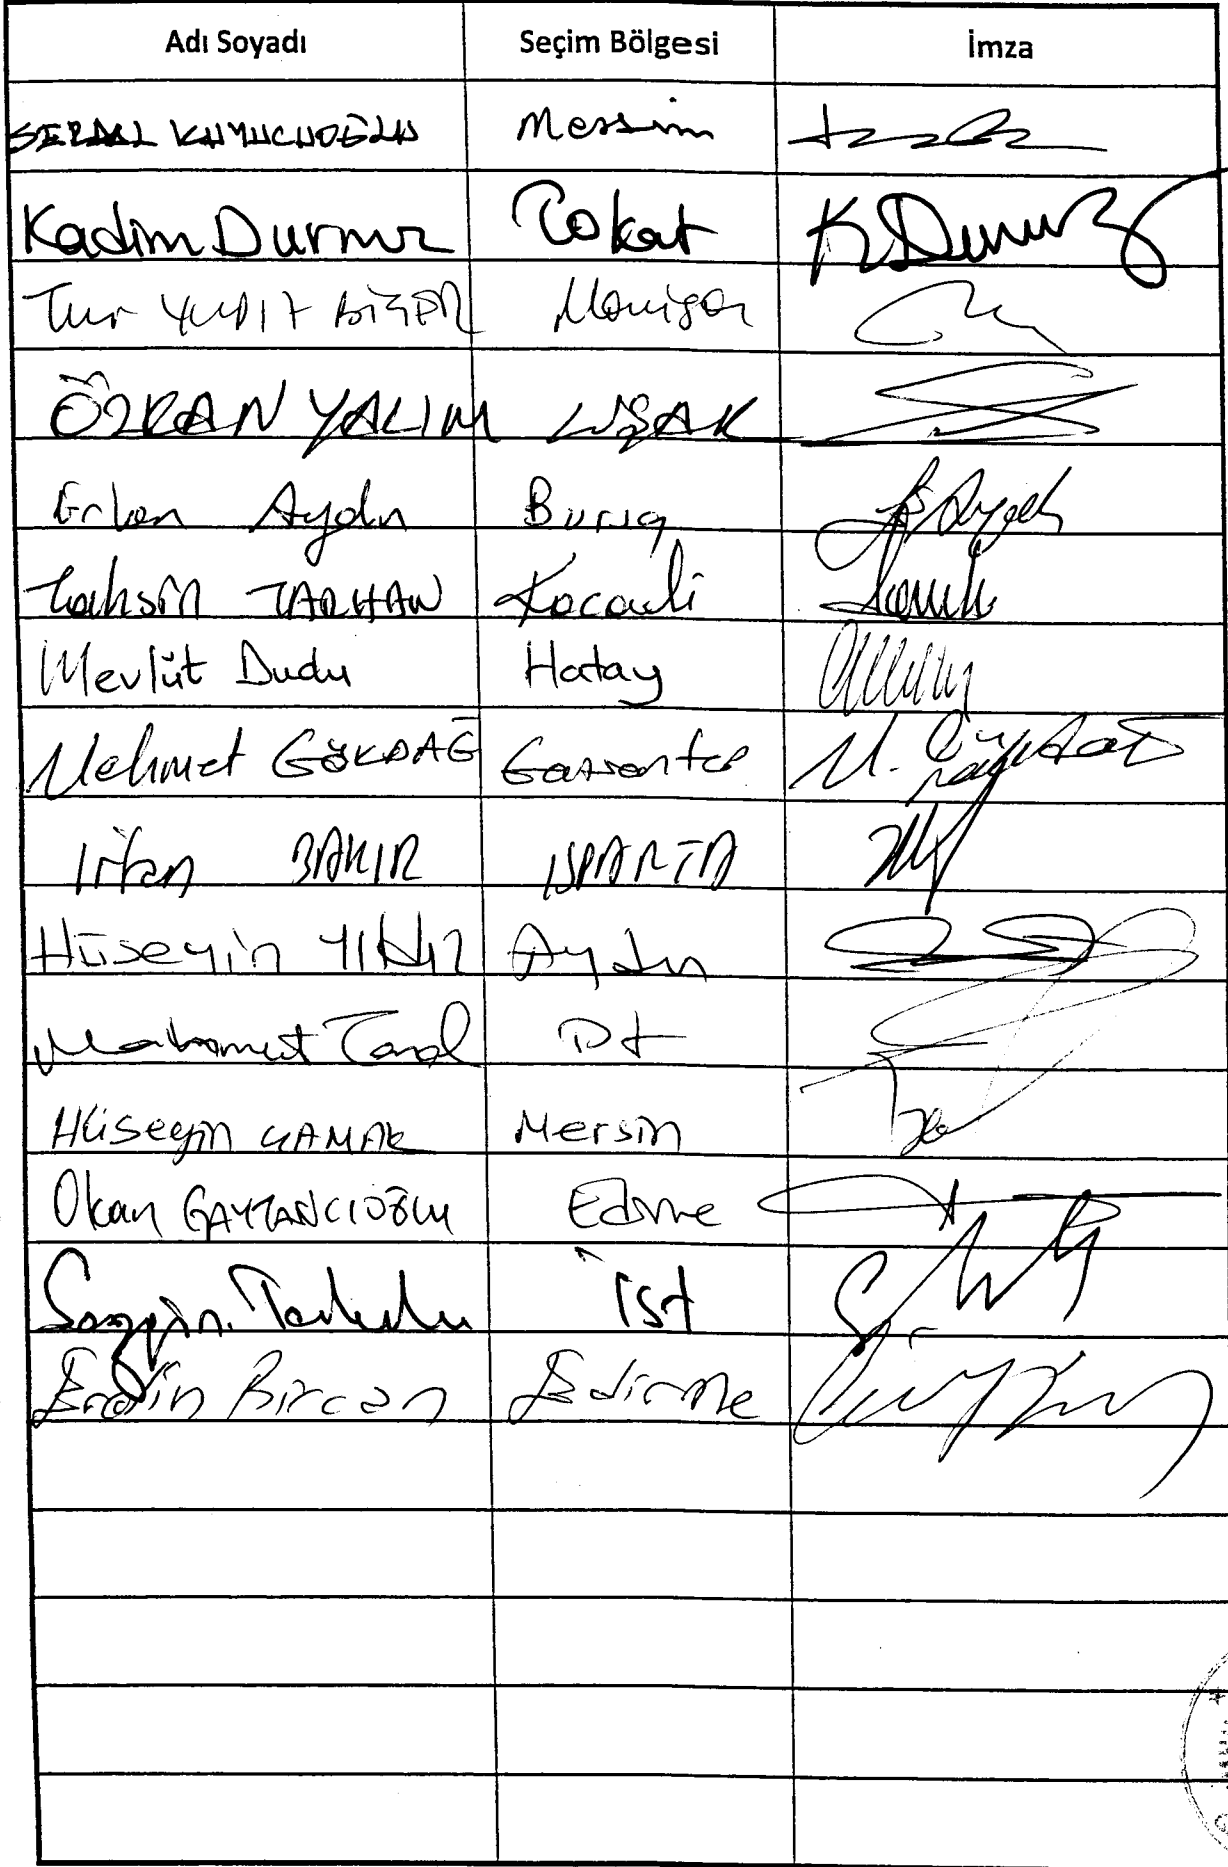 Adı Soyadı Seçim Bölgesi İmza
SERDAL KUYUCUOĞLU Mersin
Kadim Durmaz Tokat K. Durmaz
Tur YILDIZ BİÇER Manisa
ÖZKAN YALIM UŞAK
Erkan Aydın Bursa
Tahsin TARHAN Kocaeli
Mevlüt Dudu Hatay
Mehmet GÖKDAĞ Gaziantep
İrfan BAKIR ISPARTA
Hüseyin YILDIZ Aydın
Mahmut Tanal
Hüseyin ÇAMAK Mersin
Okan GAYTANCIOĞLU Edirne
Sezgin Tanrıkulu İst
Erdin Bircan Edirne